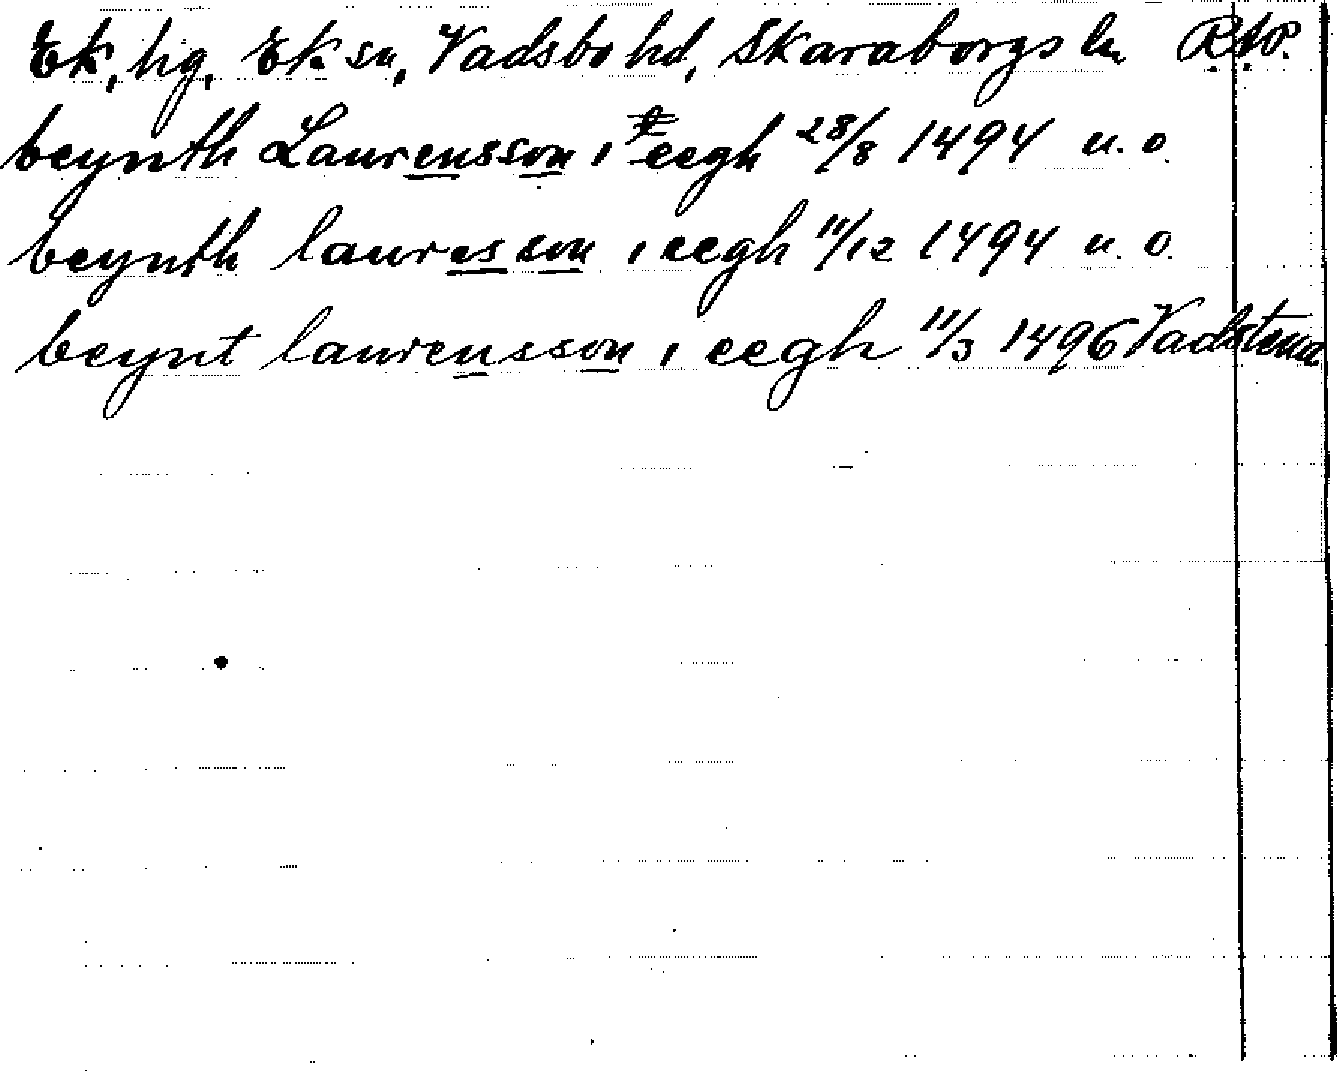 Ek, hg, Ek sn, Vadsbo hd, Skaraborgs ln RAP.
beynth Laurensson i eegh 28/8 1494 u. o.
beynth lauresson i eegh 11/12 1494 u. o.
beynt laurensson i eegh 11/3 1496 Vadstena